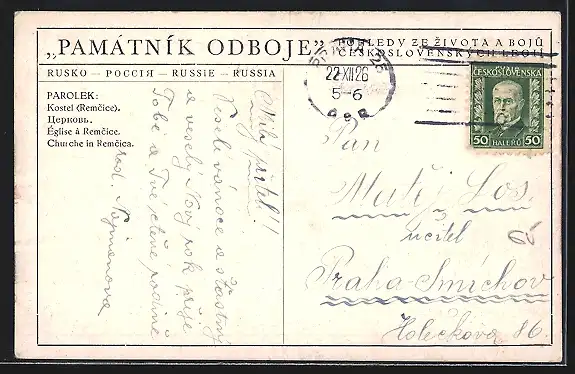 „PAMÁTNÍK ODBOJE”
POHLEDY ZE ŽIVOTA A BOJŮ
ČESKOSLOVENSKÝCH LEGIÍ
RUSKO — РОССІЯ — RUSSIE — RUSSIA
PAROLEK:
Kostel (Remčice).
Церковь.
Église à Remčice.
Churche in Remčica.
22 XII 26
5-6
ČESKOSLOVENSKA
50 HALÉŘŮ 50
Milý příteli!
Veselé vánoce a šťastný
a veselý Nový rok přeje
Tobě a Tvé ctěné rodině
rod. Najmanova
Pan
Matěj Los.
učitel
Praha-Smíchov
Holečkova 86.